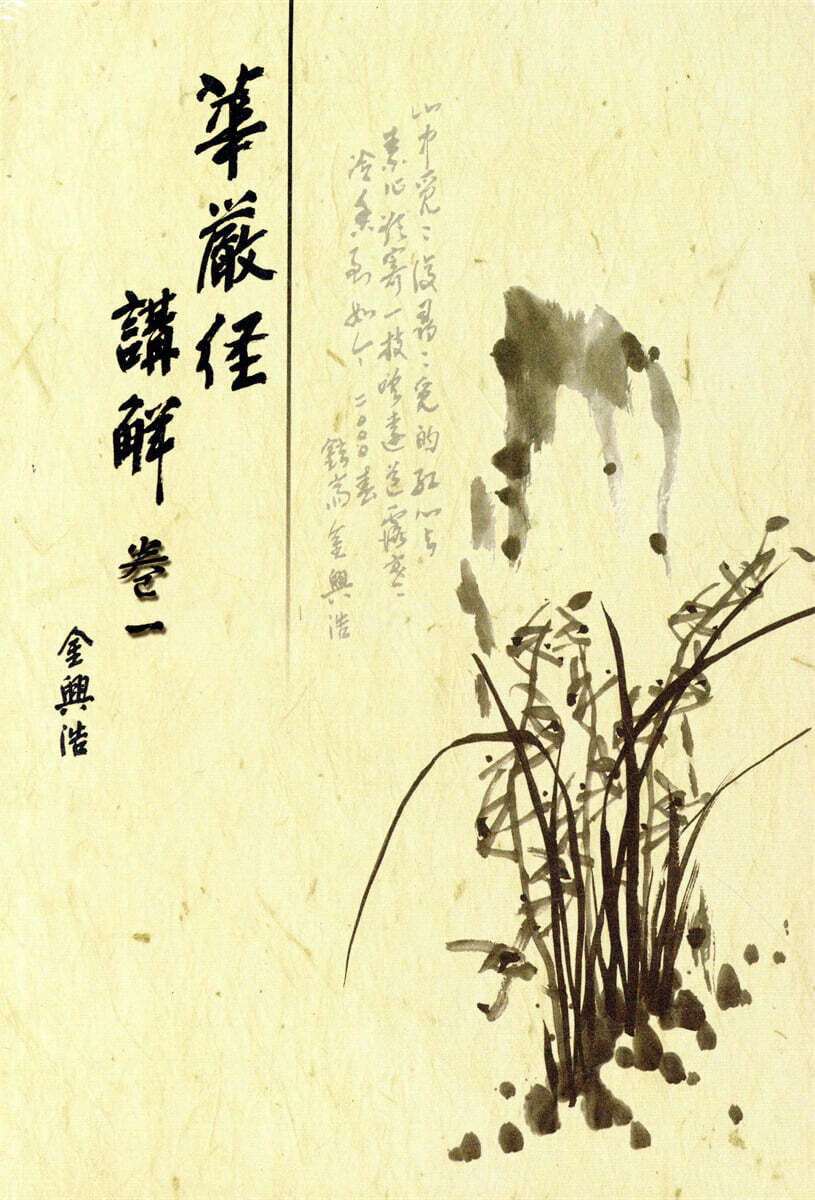 山中覓〻復尋〻覓的紅心与
素心欲寄一枝嗟遠道露寒
冷香到如今 二〇〇〇春
金興浩
華厳経
講解 卷一
金興浩